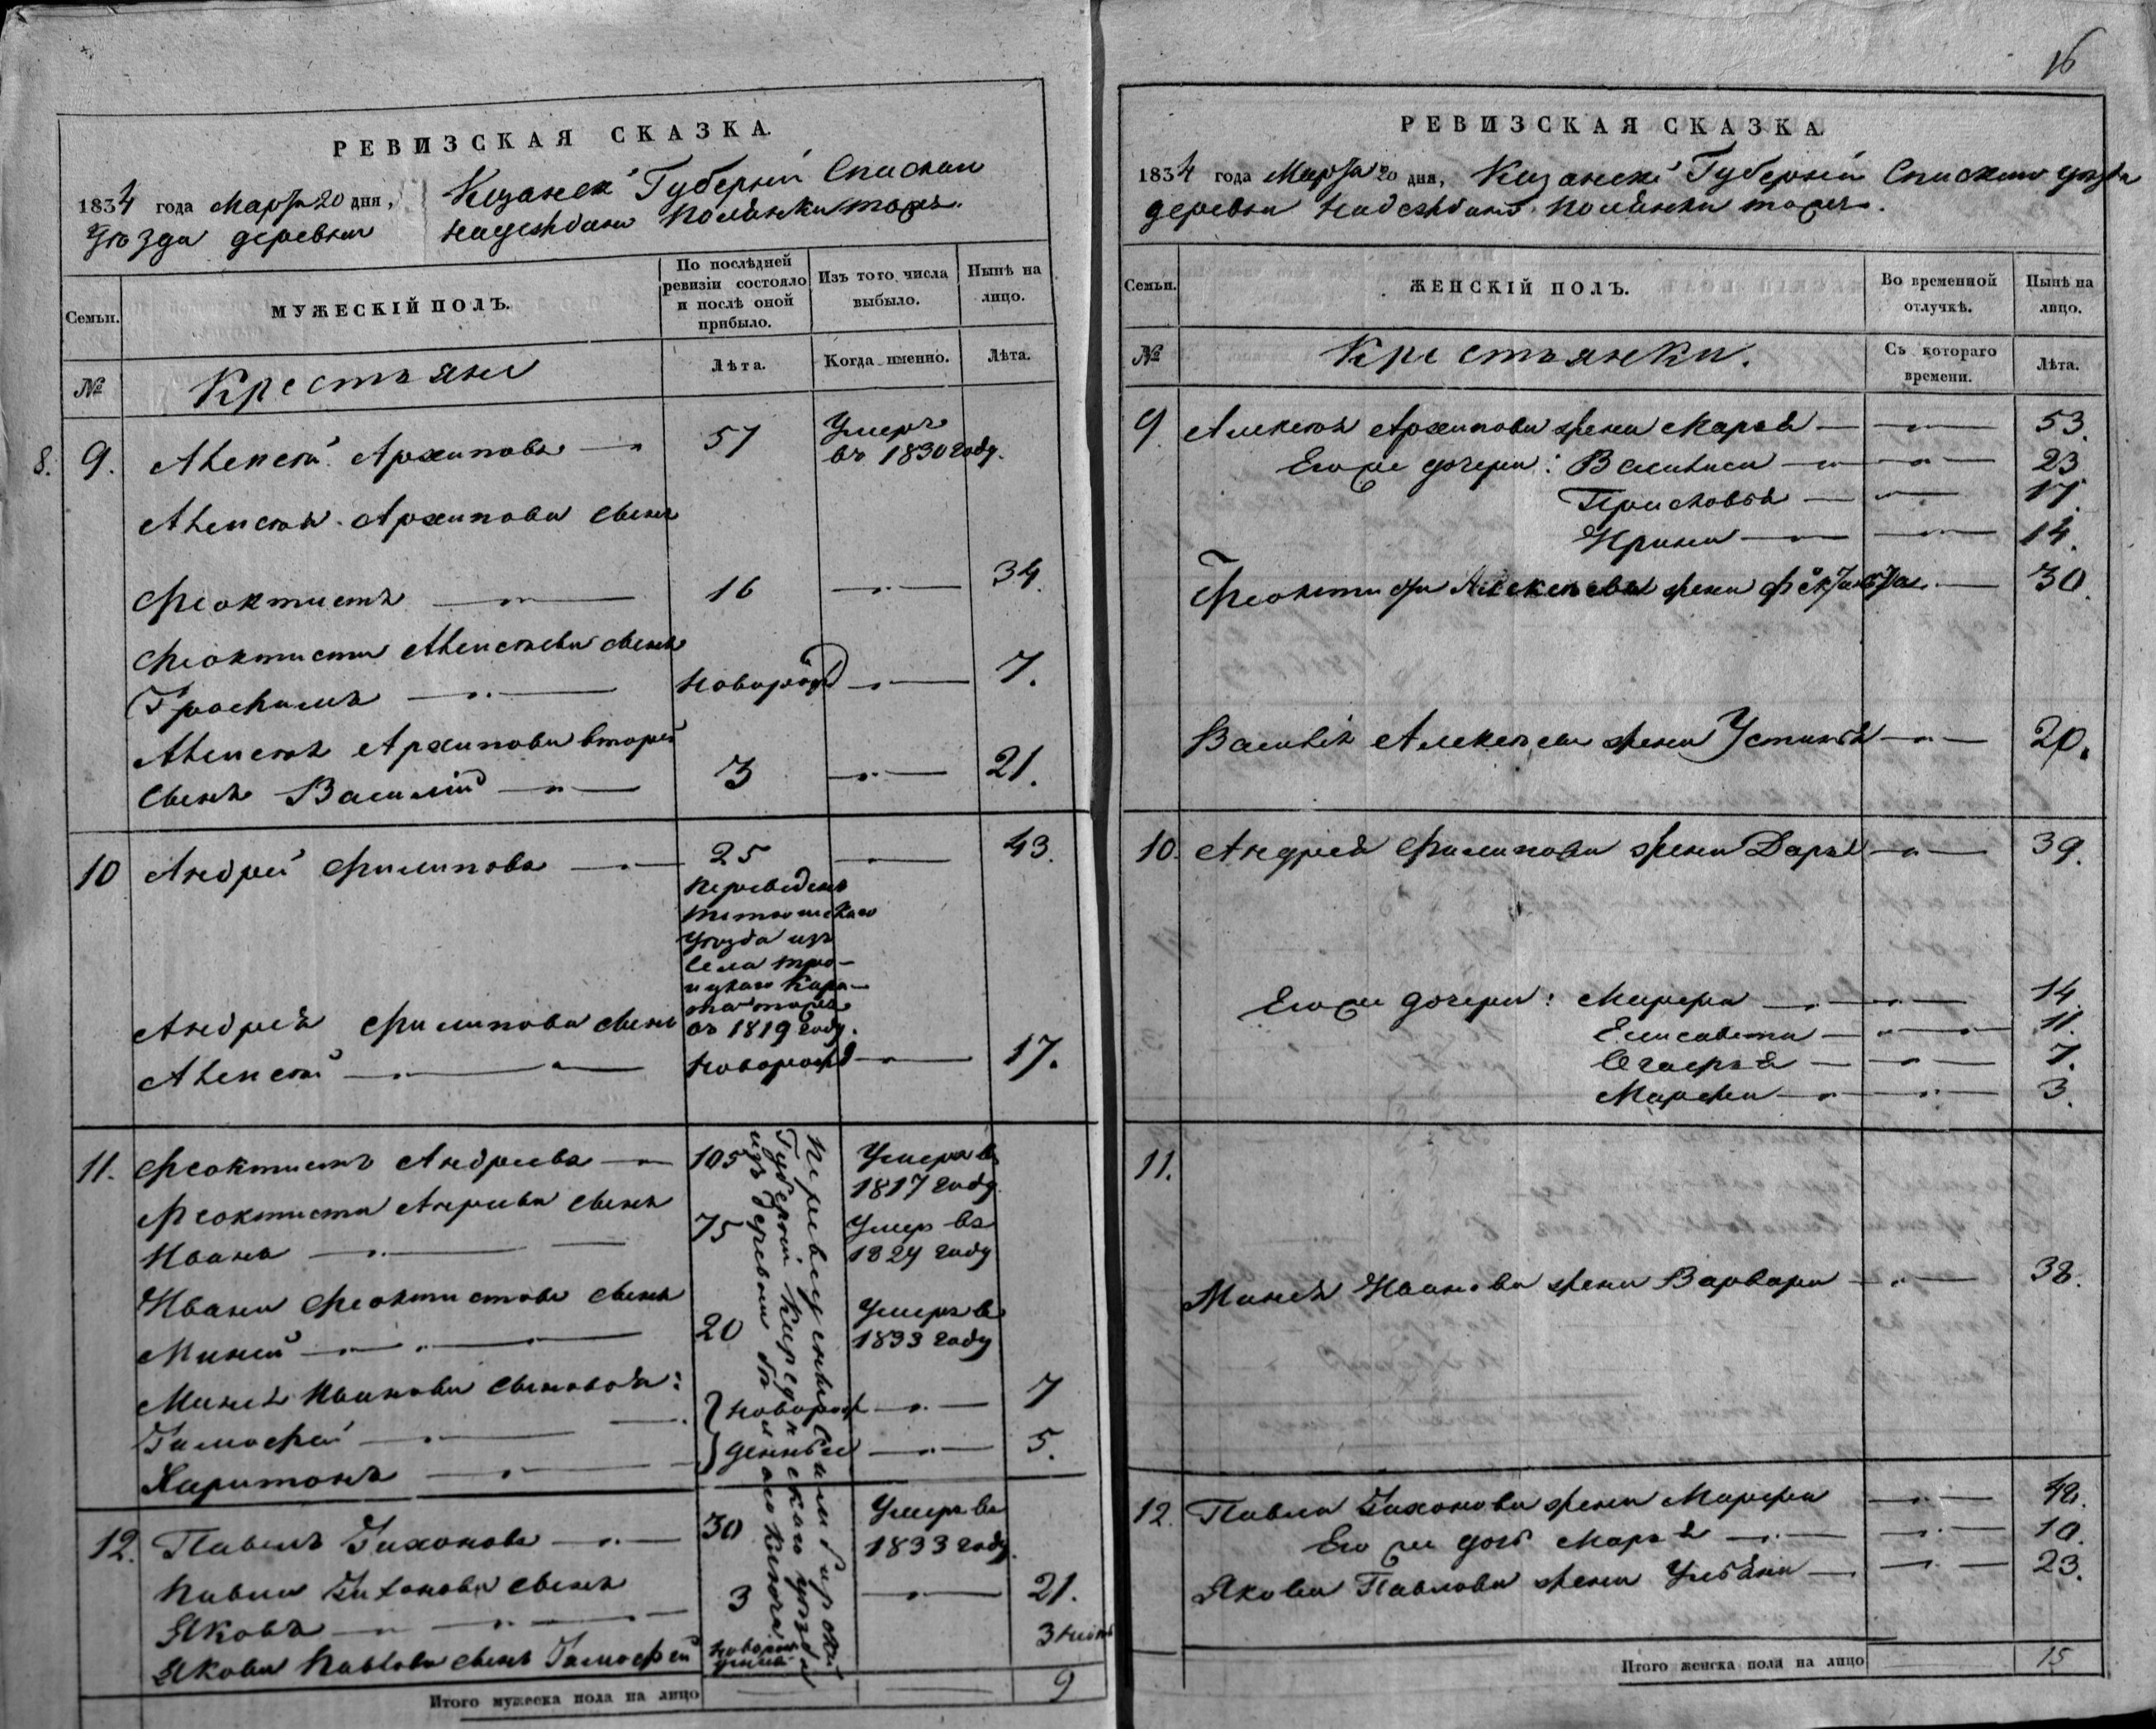 РЕВИЗСКАЯ СКАЗКА.
1834 года Марта 20 дня, Казанск. Губерніи Спаскаго
Уѣзда деревни Надеждина Полянки тожъ.
Семьи.
МУЖЕСКІЙ ПОЛЪ.
По послѣдней ревизіи состояло и послѣ оной прибыло.
Изъ того числа выбыло.
Нынѣ на лицо.
№
Крестьяне
Лѣта.
Когда именно.
Лѣта.
8. 9. Алексѣй Архиповъ 57 Умеръ въ 1830 году.
Алексѣя Архипова сынъ
Феоктистъ 16 34.
Феоктиста Алексѣева сынъ
Трофимъ новорожд 7.
Алексѣя Архипова второй
сынъ Василій 3 21.
10 Андрей Филиповъ 25 43.
переведенъ
тетюшскаго
уѣзда изъ
села тро-
ицкаго
тожъ
въ 1819 году.
Андрея Филипова сынъ
Алексѣй новорожд 17.
11. Феоктистъ Андреевъ 105 Умеръ въ 1817 году
Феоктиста Андреева сынъ
Иванъ 75 Умеръ въ 1824 году
Ивана Феоктистова сынъ
Миней 20 Умеръ въ 1833 году
Минея Иванова сыновья:
Тимофей новорож 7
Харитонъ денные 5.
переведены Симбирской
Губерніи уѣзда
изъ деревни
12. Павелъ Тихоновъ 30 Умеръ въ 1833 году.
Павла Тихонова сынъ
Яковъ 3 21.
Якова Павлова сынъ Тимофей новорож 3
Итого мужеска пола на лицо 9
16
РЕВИЗСКАЯ СКАЗКА
1834 года Марта 20 дня, Казанской Губерніи Спаскаго уѣзда
деревни Надеждина Полянки тожъ.
Семьи.
ЖЕНСКІЙ ПОЛЪ.
Во временной отлучкѣ.
Нынѣ на лицо.
№
Крестьянки.
Съ котораго времени.
Лѣта.
9 Алексѣя Архипова жена Марья 53.
Его же дочери: Василиса 23
Прасковья 17.
Ирина 14.
Феоктиста Алексѣева жена 30.
Василья Алексѣева жена Устинья 20.
10. Андрея Филипова жена Дарья 39.
Его же дочери: Марфа 14.
Елисавета 11.
7.
Марфа 3.
11.
Минея Иванова жена Варвара 38.
12. Павла Тихонова жена Марфа
Его же дочь Марья 10.
Якова Павлова жена Ульяна 23.
Итого женска пола на лицо 15